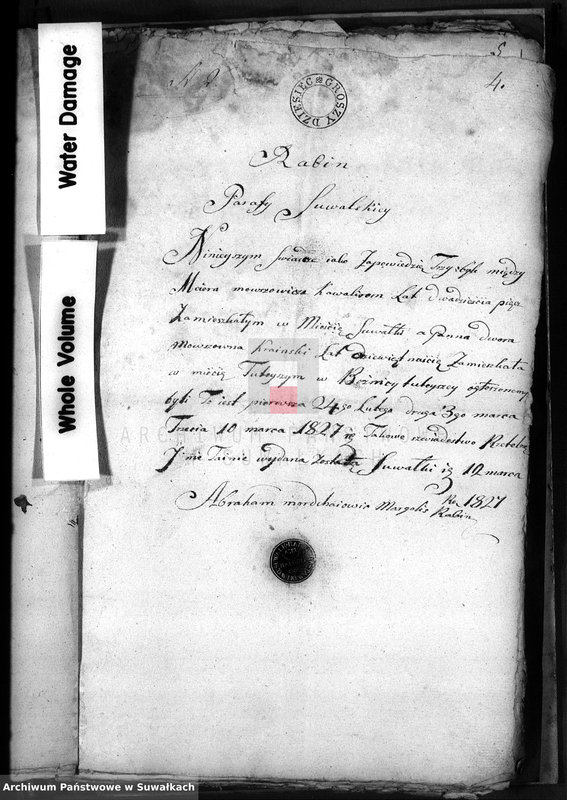 Water Damage
Whole Volume
4.
DZIESIĘĆ GROSZY
Rabin
Parafy Suwalskiey
Ninieyszym iako Zapowiedzie Trzy były między
Meiera mowszowicza Kawalirem Lat dwadziescia pięc
Zamieszkałym w Mieście Suwałki a Panna dwora
Mowszowna Krainski Lat dziewiętnaicie Zamieszkała
w mieście Tuteyszym w Bożnicy tuteyszey ogłoszonemy
były To iest pierwsza 24go Lutego druga 3go marca
Trzecia 10 marca 1827 Takowe
wydana Została Suwałki 12 marca
Ro 1827
Abraham mordchaiowicz Margolis Rabin
ARCHIWUM PAŃSTWOWE
Archiwum Państwowe w Suwałkach